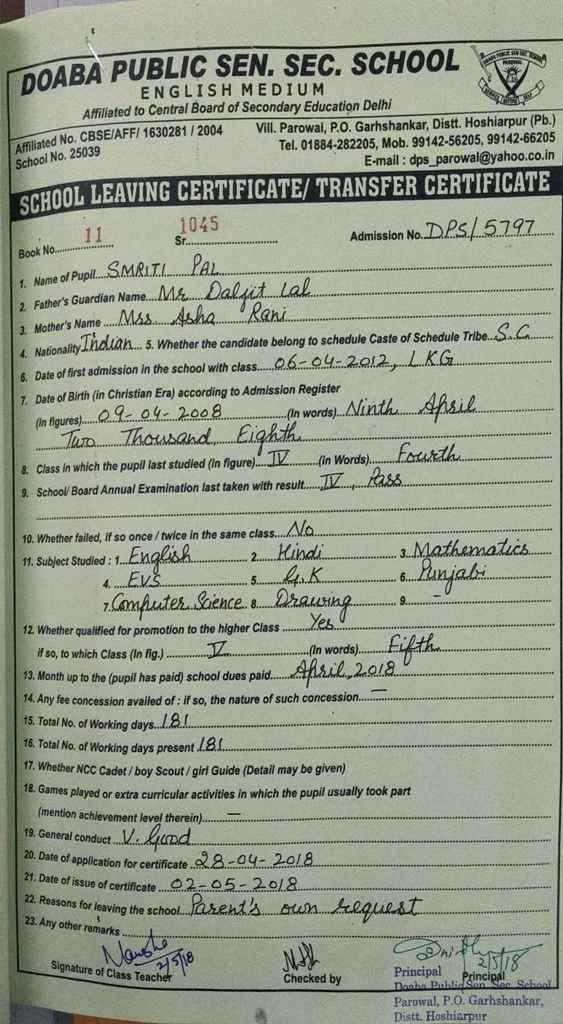 DOABA PUBLIC SEN. SEC. SCHOOL
ENGLISH MEDIUM
Affiliated to Central Board of Secondary Education Delhi
Affiliated No. CBSE/AFF/ 1630281 / 2004
School No. 25039
Vill. Parowal, P.O. Garhshankar, Distt. Hoshiarpur (Pb.)
Tel. 01884-282205, Mob. 99142-56205, 99142-66205
E-mail : dps_parowal@yahoo.co.in
SCHOOL LEAVING CERTIFICATE/ TRANSFER CERTIFICATE
Book No. 11 Sr. 1045 Admission No. DPS/5797
1. Name of Pupil SMRITI PAL
2. Father's Guardian Name Mr Daljit Lal
3. Mother's Name Mrs Asha Rani
4. Nationality Indian 5. Whether the candidate belong to schedule Caste of Schedule Tribe S.C
6. Date of first admission in the school with class 06-04-2012, LKG
7. Date of Birth (in Christian Era) according to Admission Register
(In figures) 09-04-2008 (In words) Ninth April
Two Thousand Eighth
8. Class in which the pupil last studied (in figure) IV (in Words) Fourth
9. School/ Board Annual Examination last taken with result IV, Pass
10. Whether failed, if so once / twice in the same class No
11. Subject Studied : 1. English 2. Hindi 3. Mathematics
4. EVS 5. G.K 6. Punjabi
7. Computer Science 8 Drawing 9. -
12. Whether qualified for promotion to the higher Class Yes
if so, to which Class (In fig.) V (In words) Fifth
13. Month up to the (pupil has paid) school dues paid April, 2018
14. Any fee concession availed of : if so, the nature of such concession —
15. Total No. of Working days 181
16. Total No. of Working days present 181
17. Whether NCC Cadet / boy Scout / girl Guide (Detail may be given)
18. Games played or extra curricular activities in which the pupil usually took part
(mention achievement level therein) —
19. General conduct V. Good
20. Date of application for certificate 28-04-2018
21. Date of issue of certificate 02-05-2018
22. Reasons for leaving the school Parent's own request
23. Any other remarks
2/5/18
2/5/18
Signature of Class Teacher Checked by Principal
Principal
Doaba Public Sen. Sec. School
Parowal, P.O. Garhshankar,
Distt. Hoshiarpur